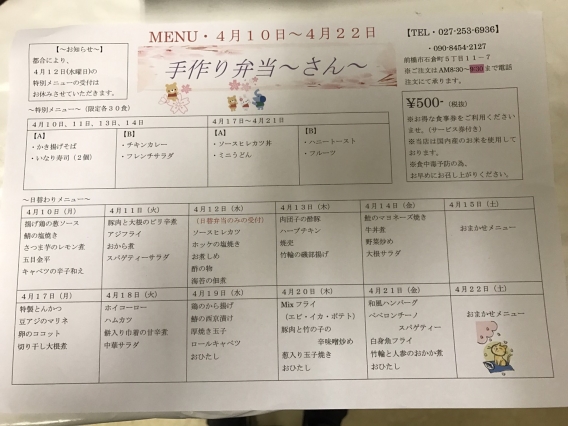 MENU・４月１０日～４月２２日
【～お知らせ～】
都合により、
４月１２日(水曜日)の
特別メニューの受付は
お休みさせていただきます。
手作り弁当～さん～
【TEL・027-253-6936】
・090-8454-2127
前橋市石倉町５丁目１１－７
※ご注文は AM8:30～9:30まで電話
注文にて承ります。
¥500-（税抜）
※お得な食事券をご利用ください
ませ。（サービス券付き）
※当店は国内産のお米を使用して
おります。
※食中毒予防の為、
お早めにお召し上がりください。
～特別メニュー～（限定各３０食）
４月１０日、１１日、１３日、１４日
４月１７日～４月２１日
【A】
・かき揚げそば
・いなり寿司（２個）
【B】
・チキンカレー
・フレンチサラダ
【A】
・ソースヒレカツ丼
・ミニうどん
【B】
・ハニートースト
・フルーツ
～日替わりメニュー～
４月１０日（月）
揚げ鶏の葱ソース
鯖の塩焼き
さつま芋のレモン煮
五目金平
キャベツの辛子和え
４月１１日（火）
豚肉と大根のピリ辛煮
アジフライ
おから煮
スパゲティーサラダ
４月１２日（水）
（日替弁当のみの受付）
ソースヒレカツ
ホッケの塩焼き
お煮しめ
酢の物
海苔の佃煮
４月１３日（木）
肉団子の酢豚
ハーブチキン
焼売
竹輪の磯部揚げ
４月１４日（金）
鮭のマヨネーズ焼き
牛丼煮
野菜炒め
大根サラダ
４月１５日（土）
おまかせメニュー
４月１７日（月）
特製とんかつ
豆アジのマリネ
卵のココット
切り干し大根煮
４月１８日（火）
ホイコーロー
ハムカツ
餅入り巾着の甘辛煮
中華サラダ
４月１９日（水）
鶏のから揚げ
鯖の西京漬け
厚焼き玉子
ロールキャベツ
おひたし
４月２０日（木）
Mix フライ
（エビ・イカ・ポテト）
豚肉と竹の子の
辛味噌炒め
葱入り玉子焼き
おひたし
４月２１日（金）
和風ハンバーグ
ペペロンチーノ
スパゲティー
白身魚フライ
竹輪と人参のおかか煮
おひたし
４月２２日（土）
おまかせメニュー